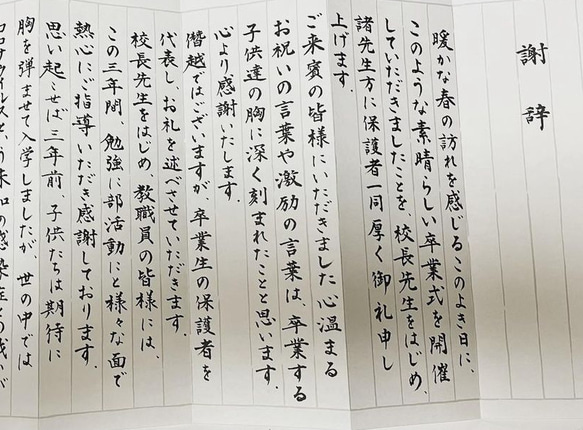 謝辞
暖かな春の訪れを感じるこのよき日に、
このような素晴らしい卒業式を開催
していただきましたことを、校長先生をはじめ、
諸先生方に保護者一同厚く御礼申し
上げます。
ご来賓の皆様にいただきました心温まる
お祝いの言葉や激励の言葉は、卒業する
子供達の胸に深く刻まれたことと思います。
心より感謝いたします。
僭越ではございますが、卒業生の保護者を
代表し、お礼を述べさせていただきます。
校長先生をはじめ、教職員の皆様には、
この三年間、勉強に部活動にと様々な面で
熱心にご指導いただき感謝しております。
思い起こせば三年前、子供たちは期待に
胸を弾ませて入学しましたが、世の中では